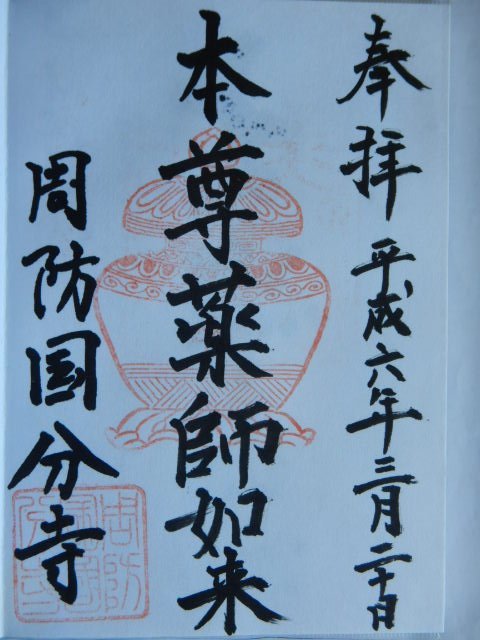 奉拝 平成六年三月二十日
本尊薬師如来
周防国分寺
周防国分寺